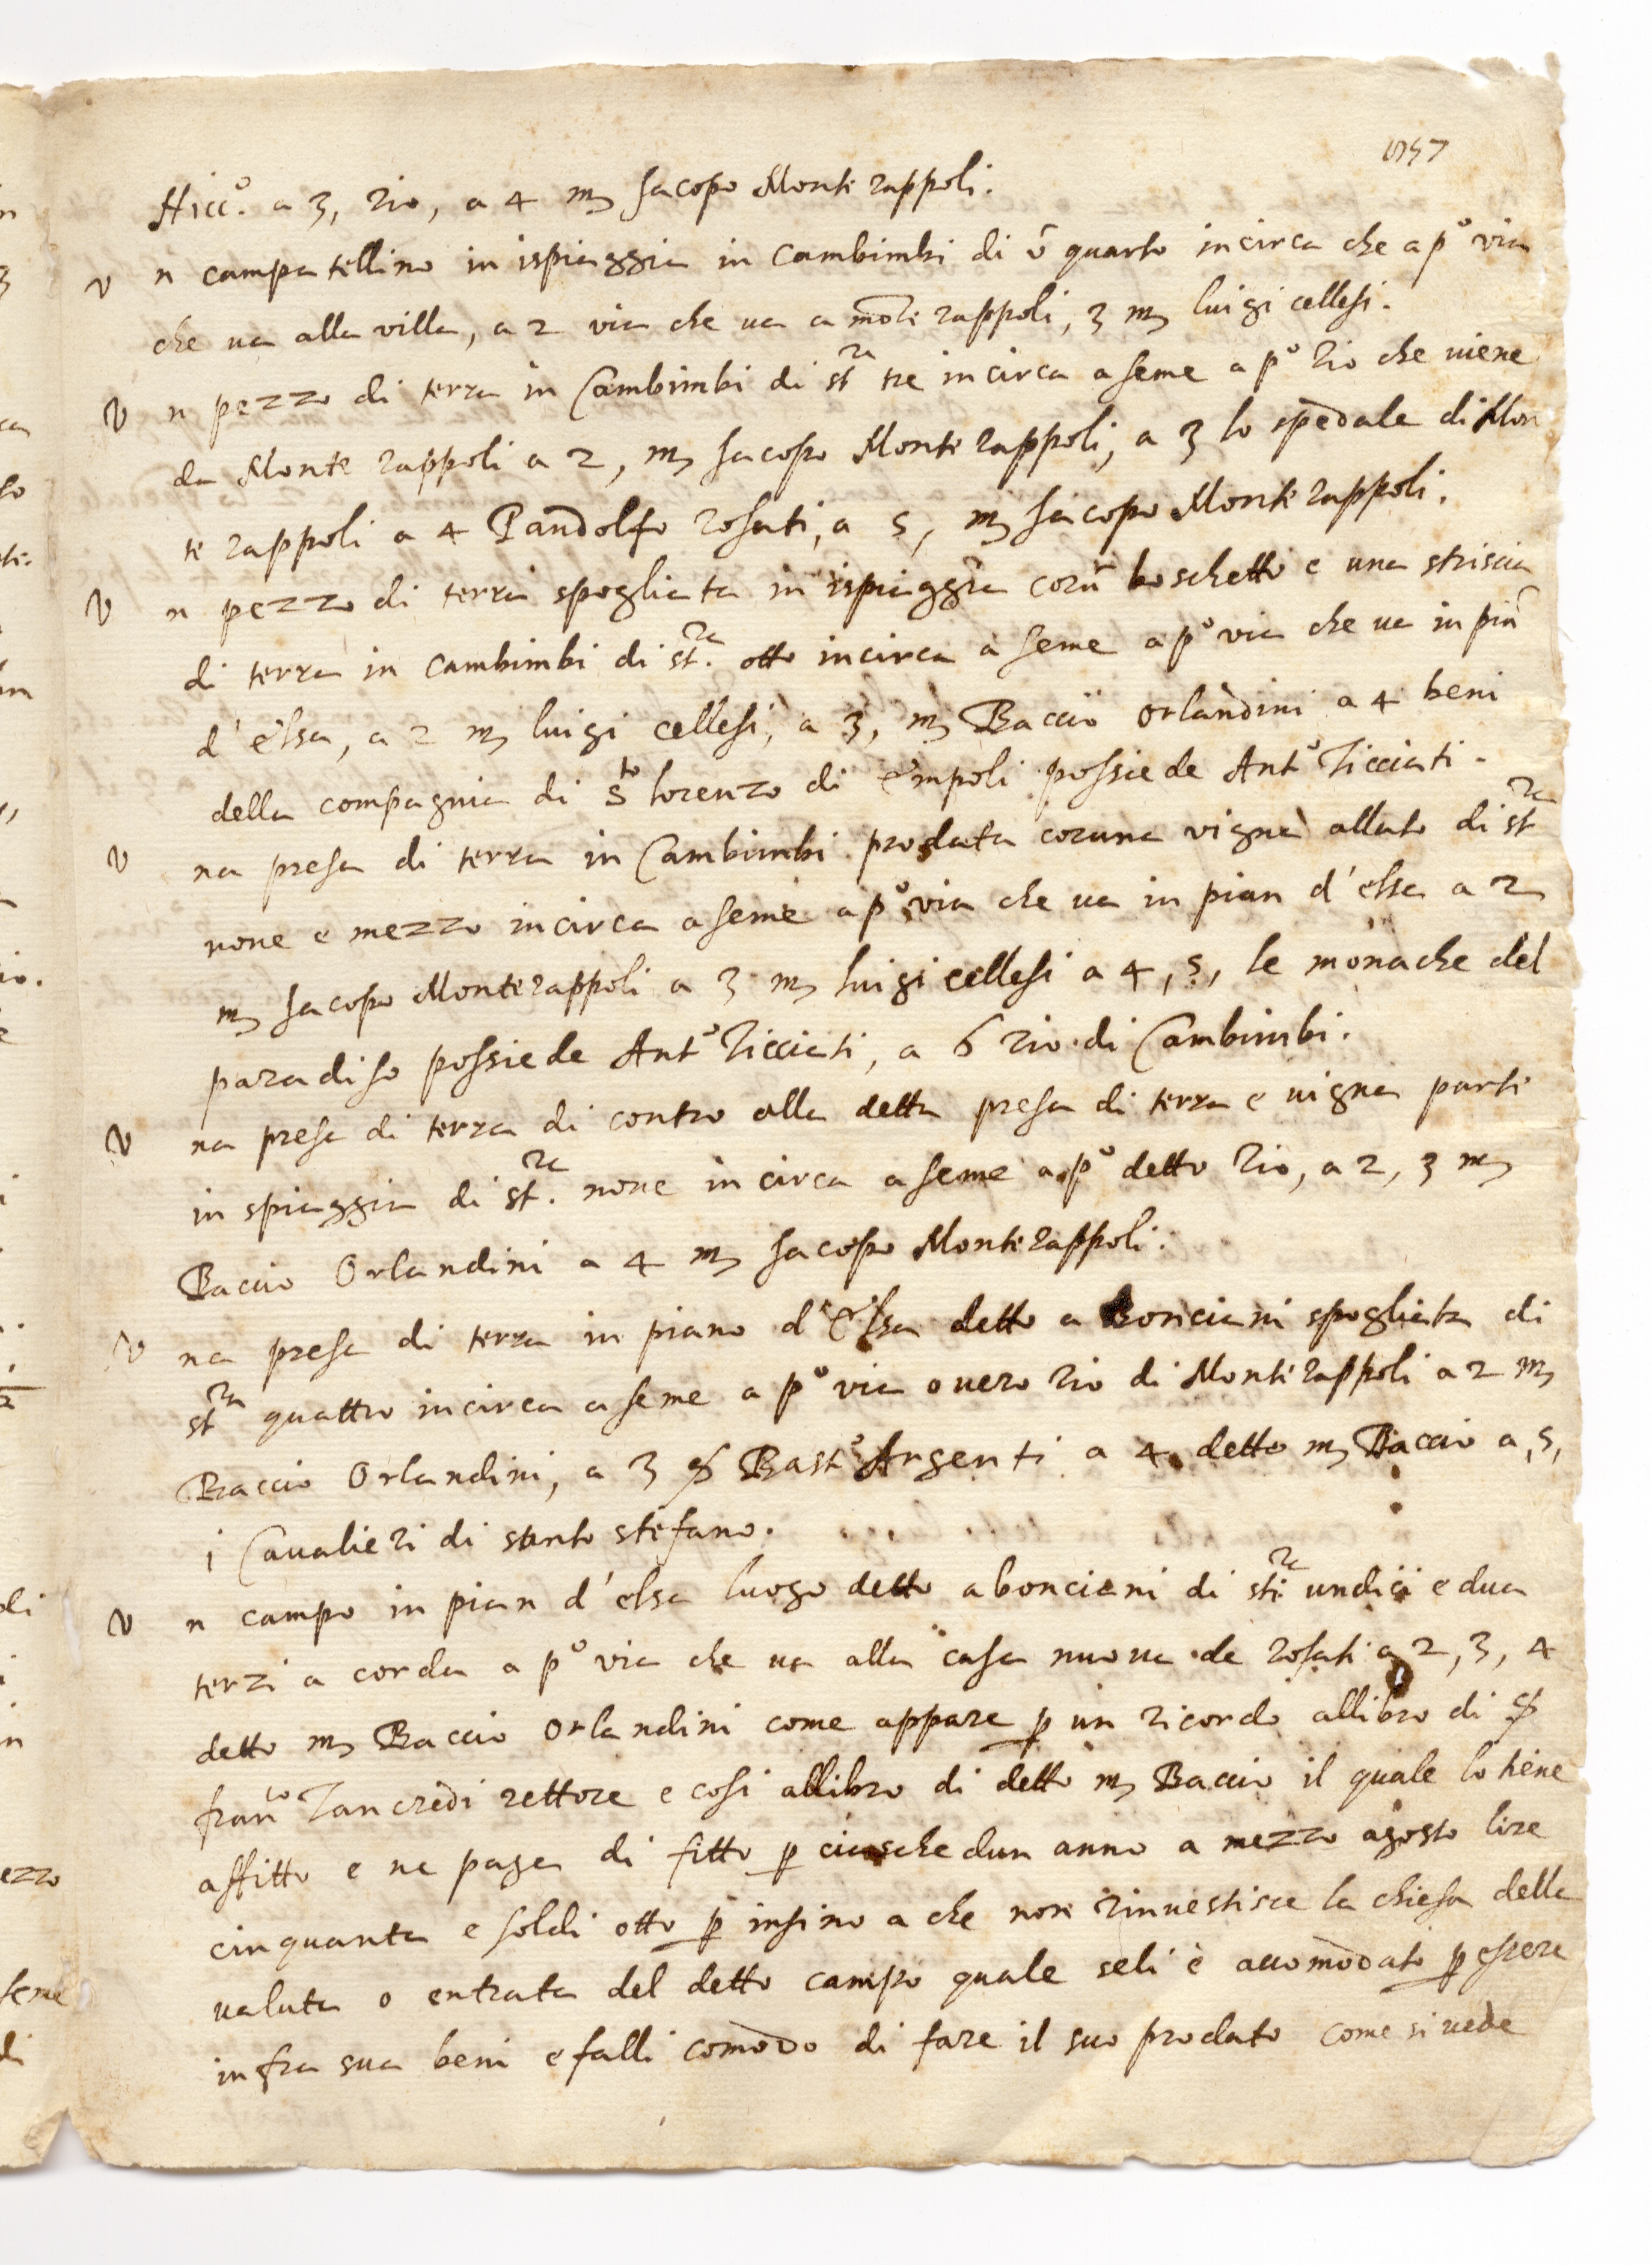 1547
Hicc.º a 3, rio, a 4 mˢ Jacopo Monte rappoli.
V n campatellino in ispiaggia in cambimbi di ū quarto incirca che a pº via
che ua alla villa, a 2 via che ua a mōte rappoli, 3 mˢ luigi cellesi.
V n pezzo di terra in Cambimbi di stʳᵃ tre incirca a seme a pº Rio che uiene
da Monte rappoli a 2, mˢ Jacopo Monte rappoli, a 3 lo spedale di Mon
te rappoli a 4 Pandolfo rosati, a 5, mˢ Jacopo Monte rappoli.
V n pezzo di terra spogliata in ispiaggia corū boschetto e una striscia
di terra in cambimbi di st.ʳᵃ otto incirca a seme a pº via che ua in piā
d'elsa, a 2 mˢ luigi cellesi, a 3, mˢ Baccio orlandini a 4 beni
della compagnia di Sᵗᵒ lorenzo di Empoli possiede Antº Ticciati.
V na presa di terra in Cambimbi prodata coruna vigna allato di stʳᵃ
noue e mezzo incirca a seme a pº via che ua in pian d'elsa a 2
mˢ Jacopo Monterappoli a 3 mˢ luigi cellesi a 4, 5, le monache del
paradiso possiede Antº Ticciati, a 6 rio di Cambimbi.
V na presa di terra di contro alla detta presa di terra e uigna parte
in spiaggia di st.ʳᵃ noue incirca a seme a pº detto Rio, a 2, 3 mˢ
Baccio Orlandini a 4 mˢ Jacopo Monterappoli.
V na presa di terra in piano d'Elsa detto a Bonciani spogliata di
stʳᵃ quattro incirca a seme a pº via ouero rio di Monte rappoli a 2 mˢ
Baccio Orlandini, a 3 ꝭ Bastº Argenti a 4 detto mˢ Baccio a, 5,
i Caualieri di santo stefano.
V n campo in pian d'elsa luogo detto a bonciani di stiʳᵃ undici e dua
terzi a corda a pº via che ua alla casa nuoua de rosati a 2, 3, 4
detto mˢ Baccio Orlandini come appare ꝑ un ricordo allibro di ꝭ
franᶜᵒ Tancredi rettore e cosi allibro di detto mˢ Baccio il quale lo tiene
affitto e ne paga di fitto ꝑ ciaschedun anno a mezzo agosto lire
cinquanta e soldi otto ꝑ insino a che non rinuestisce la chiesa della
ualuta o entrata del detto campo quale seli è accomodato ꝑ essere
infra sua beni e falli comodo di fare il suo prodato come si uede